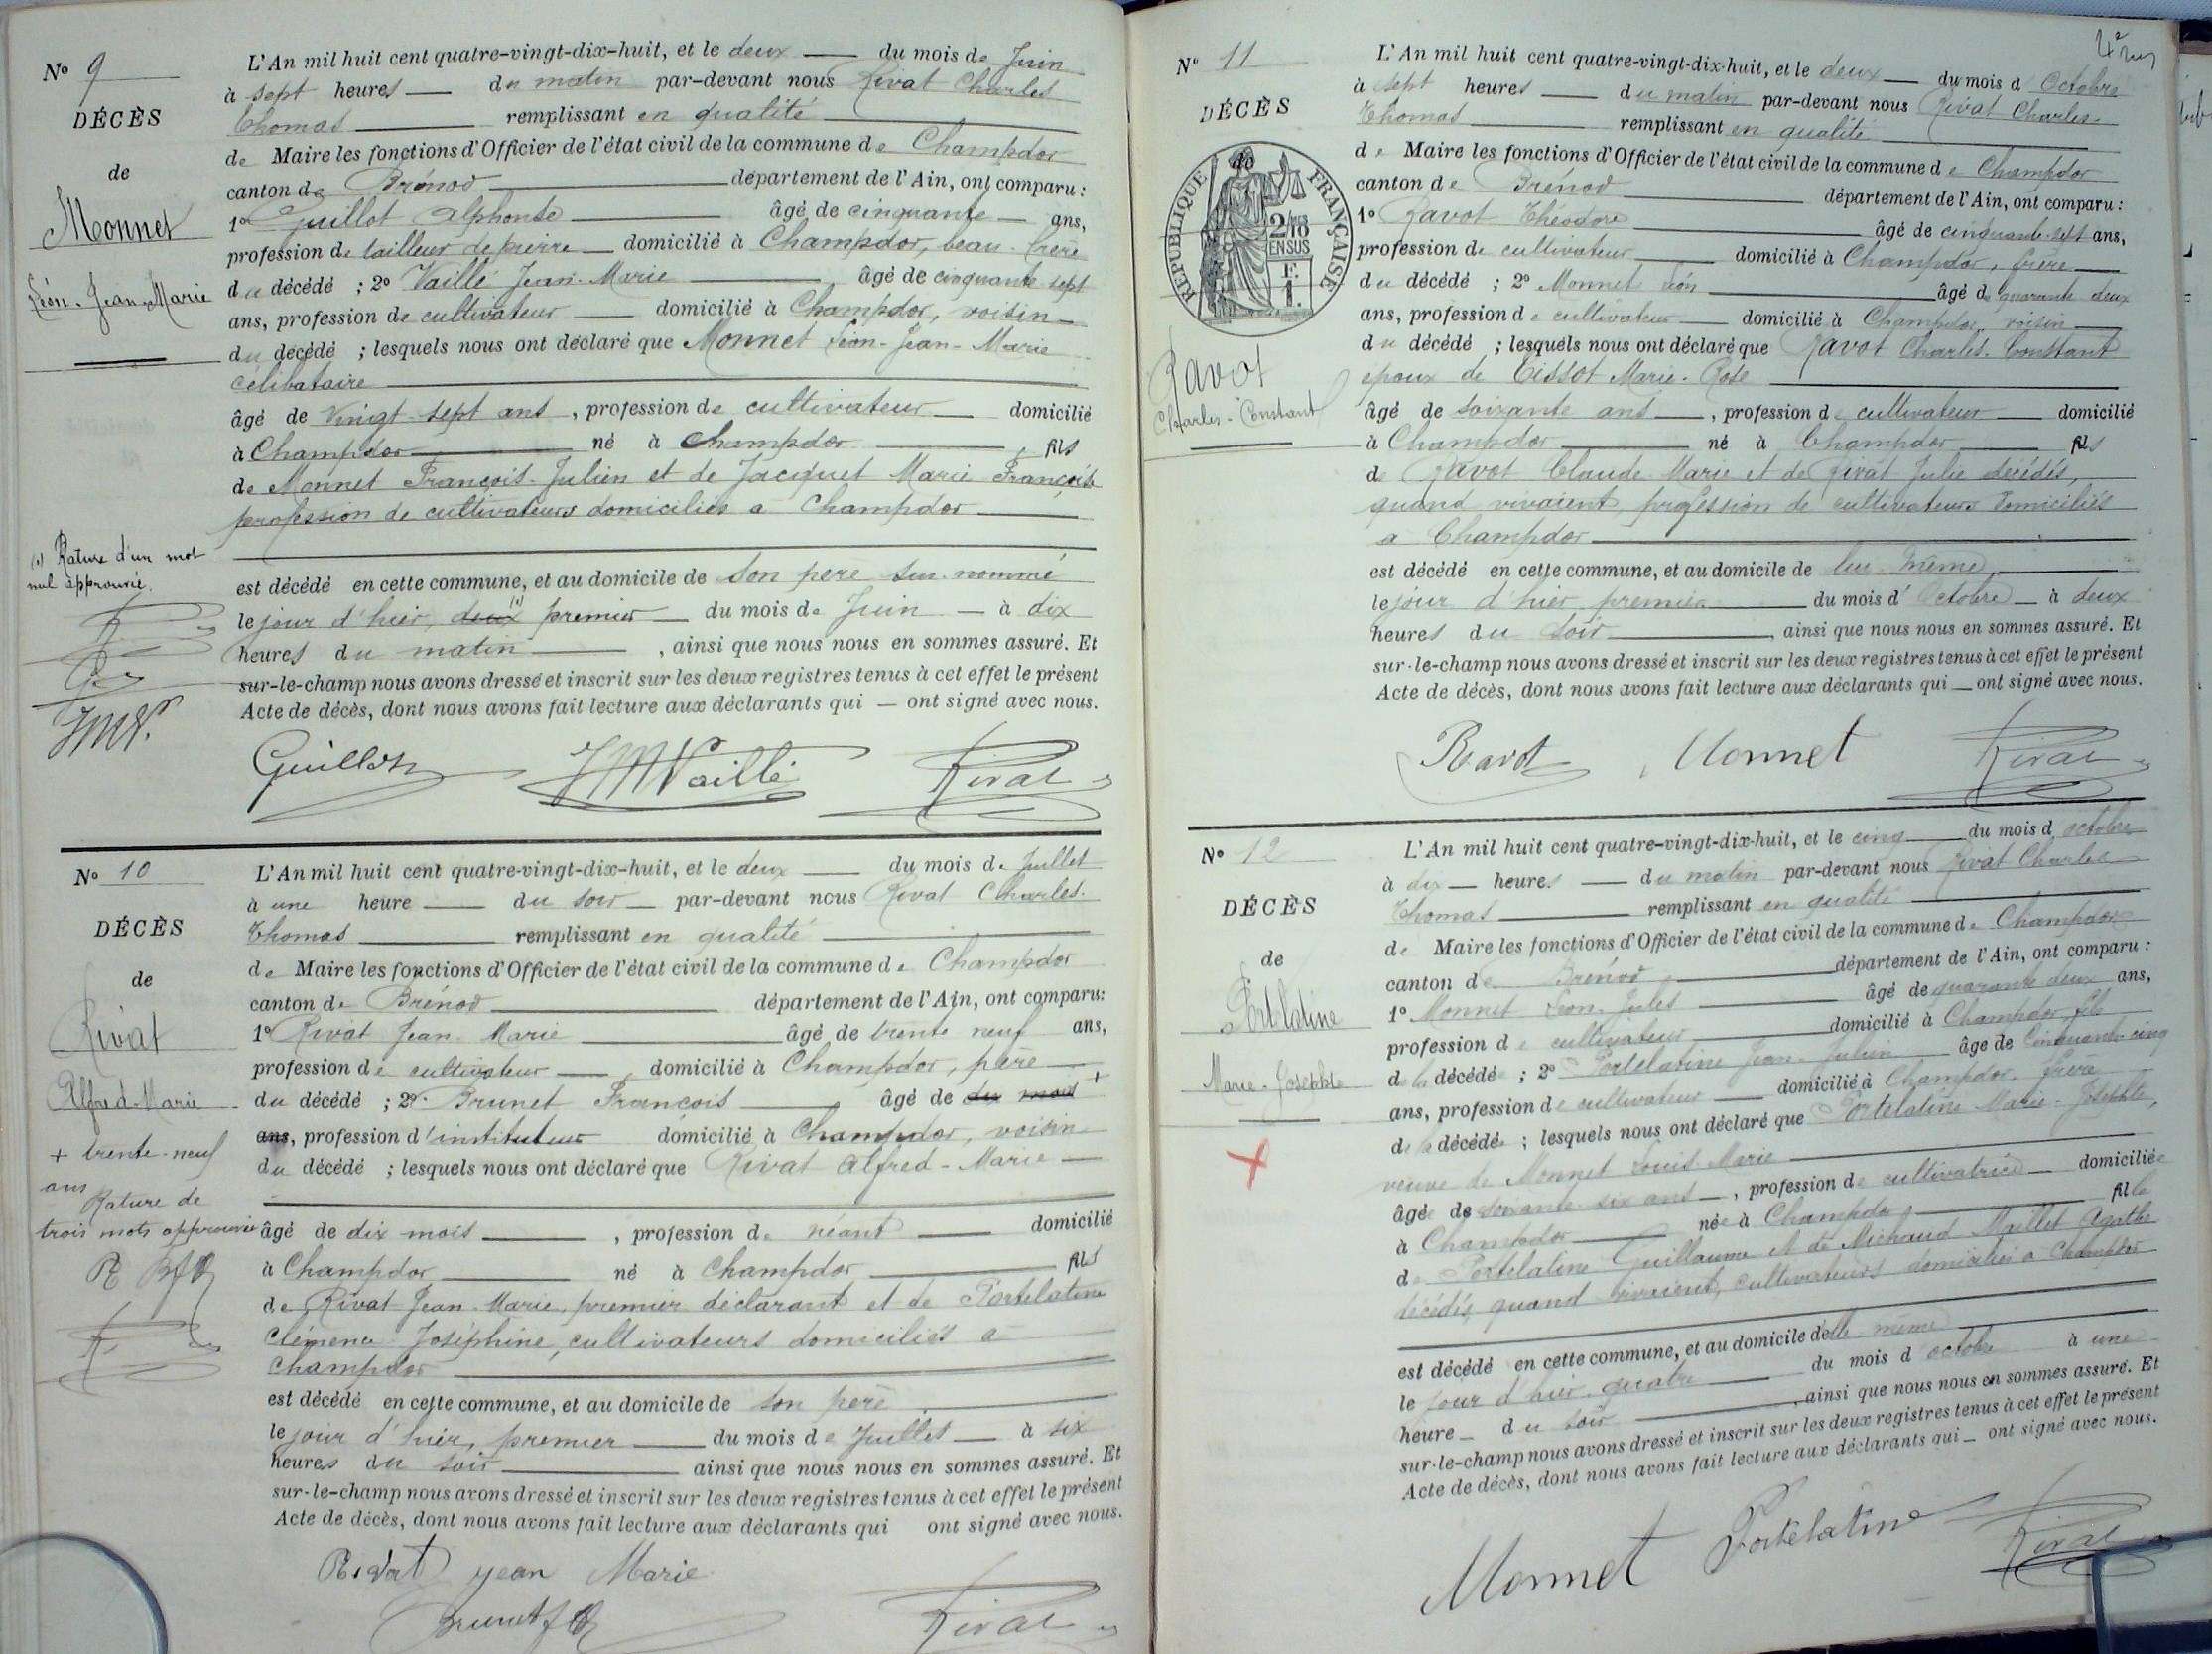 N° 9
DÉCÈS
de
Monnet
Léon-Jean-Marie
L'An mil huit cent quatre-vingt-dix-huit, et le deux du mois de Juin
à sept heures du matin par-devant nous Rivat Charles
Thomas remplissant en qualité
de Maire les fonctions d'Officier de l'état civil de la commune de Champdor
canton de Brénod département de l'Ain, ont comparu :
1° Guillot Alphonse âgé de cinquante ans,
profession de tailleur de pierre domicilié à Champdor, beau-frère
du décédé ; 2° Vaillé Jean-Marie âgé de cinquante-sept
ans, profession de cultivateur domicilié à Champdor, voisin
du décédé ; lesquels nous ont déclaré que Monnet Léon-Jean-Marie
célibataire
âgé de vingt-sept ans, profession de cultivateur domicilié
à Champdor né à Champdor, fils
de Monnet François-Julien et de Jacquet Marie Françoise
profession de cultivateurs domiciliés à Champdor
(1) Rature d'un mot
nul approuvée.
JMV.
est décédé en cette commune, et au domicile de son père sus-nommé
le jour d'hier, deux (1) premier du mois de Juin à dix
heures du matin, ainsi que nous nous en sommes assuré. Et
sur-le-champ nous avons dressé et inscrit sur les deux registres tenus à cet effet le présent
Acte de décès, dont nous avons fait lecture aux déclarants qui — ont signé avec nous.
Guillot JMVaillé Rivat
N° 10
DÉCÈS
de
Rivat
Alfred-Marie
+ trente-neuf
ans
Rature de
trois mots approuvée
L'An mil huit cent quatre-vingt-dix-huit, et le deux du mois de Juillet
à une heure du soir par-devant nous Rivat Charles-
Thomas remplissant en qualité
de Maire les fonctions d'Officier de l'état civil de la commune de Champdor
canton de Brénod département de l'Ain, ont comparu:
1° Rivat Jean-Marie âgé de trente neuf ans,
profession de cultivateur domicilié à Champdor, père
du décédé ; 2° Brunet François âgé de du mois +
ans, profession d'instituteur domicilié à Champdor, voisin
du décédé ; lesquels nous ont déclaré que Rivat Alfred-Marie
âgé de dix mois, profession de néant domicilié
à Champdor né à Champdor fils
de Rivat Jean-Marie, premier déclarant et de Portelatine
Clémence Joséphine, cultivateurs domiciliés à
Champdor
est décédé en cette commune, et au domicile de son père
le jour d'hier, premier du mois de Juillet à six
heures du soir ainsi que nous nous en sommes assuré. Et
sur-le-champ nous avons dressé et inscrit sur les deux registres tenus à cet effet le présent
Acte de décès, dont nous avons fait lecture aux déclarants qui ont signé avec nous.
Rivat jean Marie
Brunet f Rivat
N° 11
DÉCÈS
de
RÉPUBLIQUE FRANÇAISE
2/10 EN SUS
Ravot
Charles-Constant
L'An mil huit cent quatre-vingt-dix-huit, et le deux du mois d Octobre
à sept heures du matin par-devant nous Rivat Charles-
Thomas remplissant en qualité
de Maire les fonctions d'Officier de l'état civil de la commune de Champdor
canton de Brénod département de l'Ain, ont comparu :
1° Ravot Théodore âgé de cinquante-sept ans,
profession de cultivateur domicilié à Champdor, frère
du décédé ; 2° Monnet Léon âgé de quarante deux
ans, profession de cultivateur domicilié à Champdor, voisin
du décédé ; lesquels nous ont déclaré que Ravot Charles-Constant
époux de Tissot Marie-Rose
âgé de soixante ans, profession de cultivateur domicilié
à Champdor né à Champdor fils
de Ravot Claude-Marie et de Rivat Julie décédés,
quand vivaient, profession de cultivateurs domiciliés
à Champdor
est décédé en cette commune, et au domicile de lui-même
le jour d'hier, premier du mois d'Octobre à deux
heures du soir, ainsi que nous nous en sommes assuré. Et
sur-le-champ nous avons dressé et inscrit sur les deux registres tenus à cet effet le présent
Acte de décès, dont nous avons fait lecture aux déclarants qui — ont signé avec nous.
Ravot Monnet Rivat
N° 12
DÉCÈS
de
Portelatine
Marie-Josephte
L'An mil huit cent quatre-vingt-dix-huit, et le cinq du mois d octobre
à dix heures du matin par-devant nous Rivat Charles
Thomas remplissant en qualité
de Maire les fonctions d'Officier de l'état civil de la commune de Champdor
canton de Brénod département de l'Ain, ont comparu :
1° Monnet Léon-Jules âgé de quarante deux ans,
profession de cultivateur domicilié à Champdor, fils
de la décédée ; 2° Portelatine Jean-Julien âgé de cinquante-cinq
ans, profession de cultivateur domicilié à Champdor, frère
de la décédée ; lesquels nous ont déclaré que Portelatine Marie-Josephte,
veuve de Monnet Louis-Marie
âgée de soixante-six ans, profession de cultivatrice domiciliée
à Champdor née à Champdor fille
de Portelatine Guillaume et de Michaud Maillet Agathe
décédés, quand vivaient, cultivateurs domiciliés à Champdor
est décédé en cette commune, et au domicile d'elle même
le jour d'hier quatre du mois d octobre à une
heure du soir, ainsi que nous nous en sommes assuré. Et
sur-le-champ nous avons dressé et inscrit sur les deux registres tenus à cet effet le présent
Acte de décès, dont nous avons fait lecture aux déclarants qui — ont signé avec nous.
Monnet Portelatine Rivat